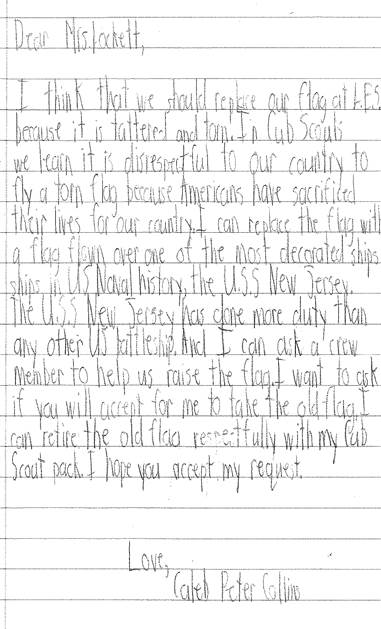 Dear Mrs. Lockett,
I think that we should replace our flag at L.E.S
because it is tattered and torn. In Cub Scouts
we learn it is disrespectful to our country to
fly a torn flag because Americans have sacrificed
their lives for our country. I can replace the flag with
a flag flown over one of the most decorated ships
ships in US Naval history, the U.S.S New Jersey.
The U.S.S New Jersey has done more duty than
any other US battleship. And I can ask a crew
member to help us raise the flag. I want to ask
if you will accept for me to take the old flag. I
can retire the old flag respectfully with my Cub
Scout pack. I hope you accept my request.
Love,
Caleb Peter Collins